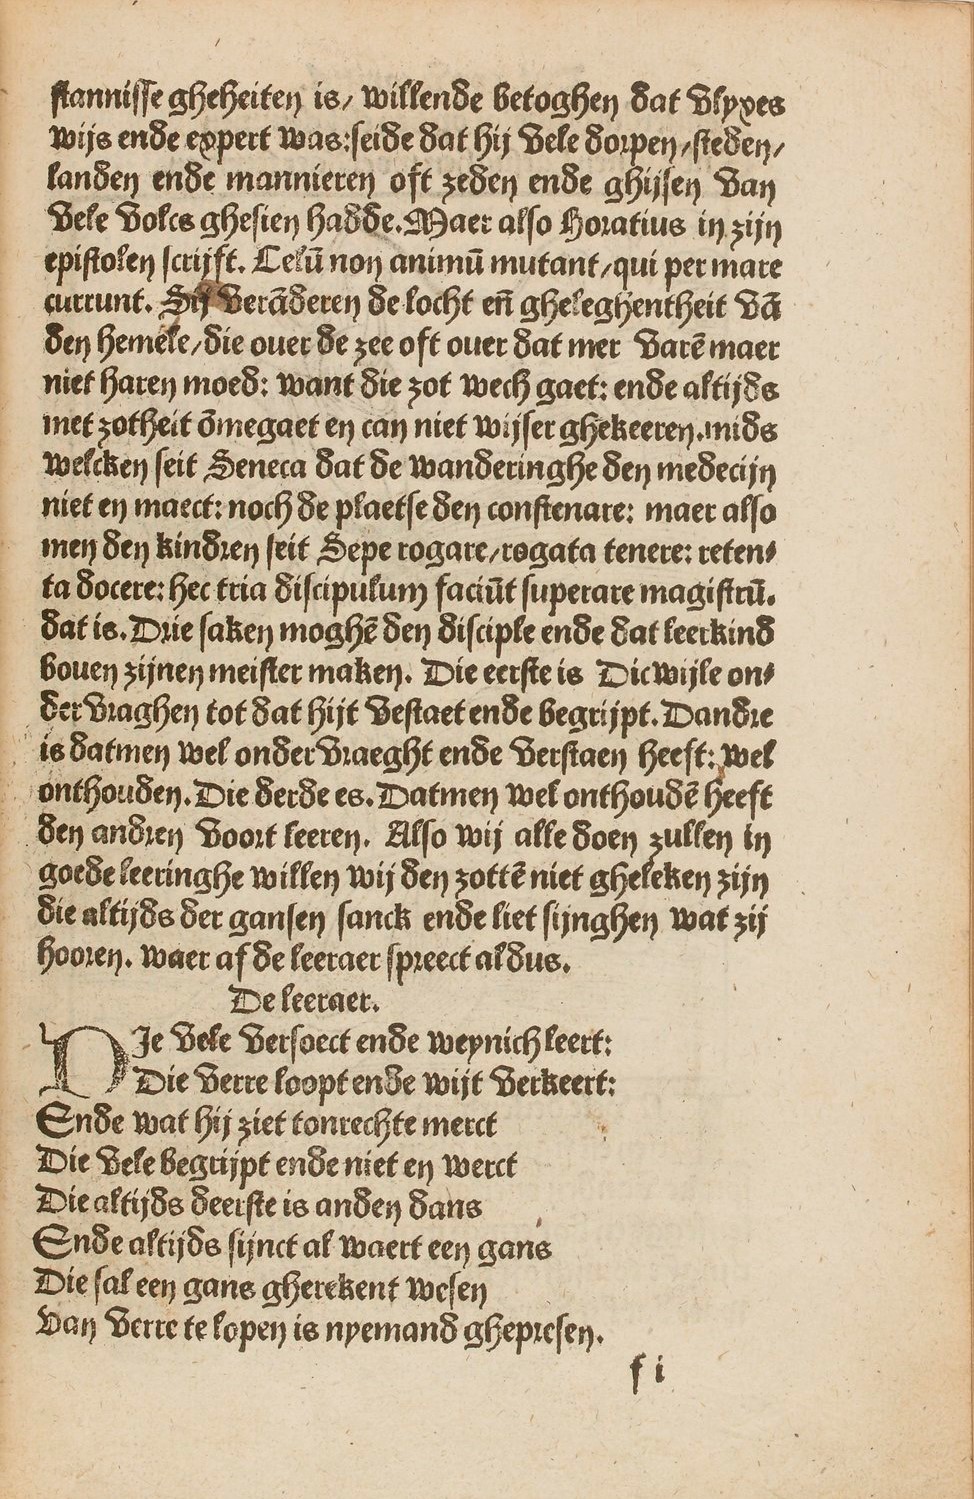 stannisse gheheiten is/ willende betoghen dat Vlyxes
wijs ende expert was:seide dat hij vele dorpen/steden/
landen ende mannieren oft zeden ende ghijsen van
vele volcs ghesien hadde.Maer also Horatius in zijn
epistolen scrijft. Celū non animū mutant/qui per mare
currunt. Sij verāderen de locht en̄ gheleghentheit vā
den hemele/die ouer de zee oft ouer dat mer varē maer
niet haren moed: want die zot wech gaet: ende altijds
met zotheit ōmegaet en can niet wijser ghekeeren.mids
welcken seit Seneca dat de wanderinghe den medecijn
niet en maect: noch de plaetse den constenare: maer also
men den kindren seit Sepe rogare/rogata tenere: reten⸗
ta docere: hec tria discipulum faciūt superare magistrū.
dat is.Drie saken moghē den disciple ende dat leerkind
bouen zijnen meister maken. Die eerste is Dicwijle on⸗
der vraghen tot dat hijt vestaet ende begrijpt.Dandre
is datmen wel onder vraeght ende verstaen heeft: wel
onthouden.Die derde es.Datmen wel onthoudē heeft
den andren voort leeren. Also wij alle doen zullen in
goede leeringhe willen wij den zottē niet gheleken zijn
die altijds der gansen sanck ende liet sijnghen wat zij
hooren. waer af de leeraer spreect aldus.
De leeraer.
DIe vele versoect ende weynich leert:
Die verre loopt ende wijt verkeert:
Ende wat hij ziet tonrechte merct
Die vele begrijpt ende niet en werct
Die altijds deerste is anden dans
Ende altijds sijnct al waert een gans
Die sal een gans gherekent wesen
van verre te lopen is nyemand ghepresen.
f i